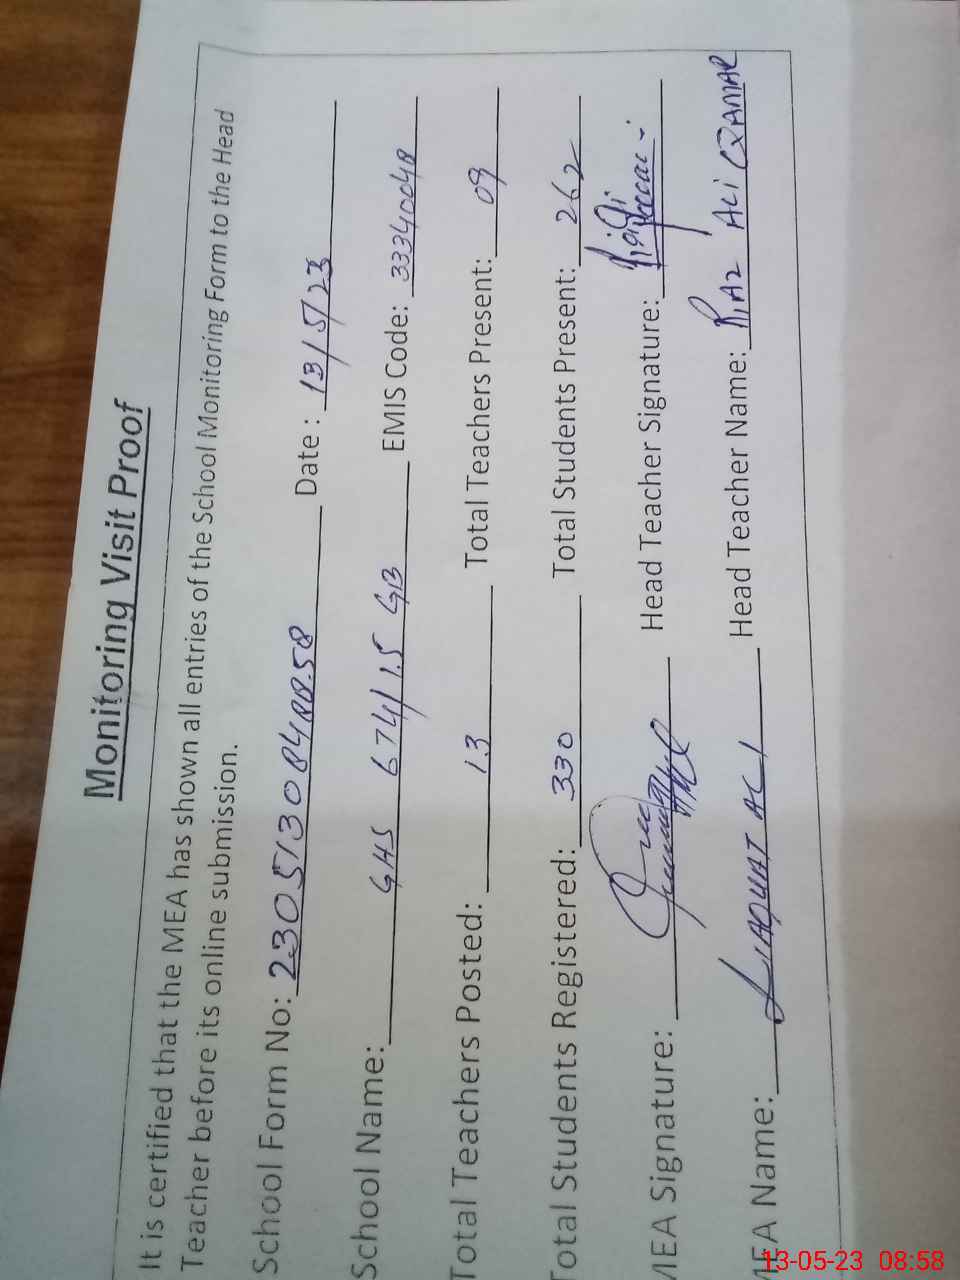 Monitoring Visit Proof
It is certified that the MEA has shown all entries of the School Monitoring Form to the Head
Teacher before its online submission.
School Form No: Date : 13/5/23
School Name: GHS 674/15 GB EMIS Code: 33340048
Total Teachers Posted: 13 Total Teachers Present: 09
Total Students Registered: 330 Total Students Present: 262
MEA Signature: Head Teacher Signature:
MEA Name: LIAQUAT ALI Head Teacher Name: RIAZ ALI QAMAR
13-05-23 08:58